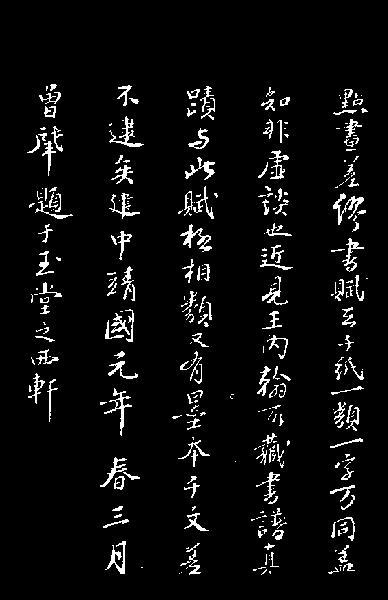 點畫差繆書賦云千紙一類一字万同盖
知非虛談也近見王內翰所藏書譜真
蹟与此賦極相類又有墨本千文差
不逮矣建中靖國元年春三月
曾肇題于玉堂之西軒